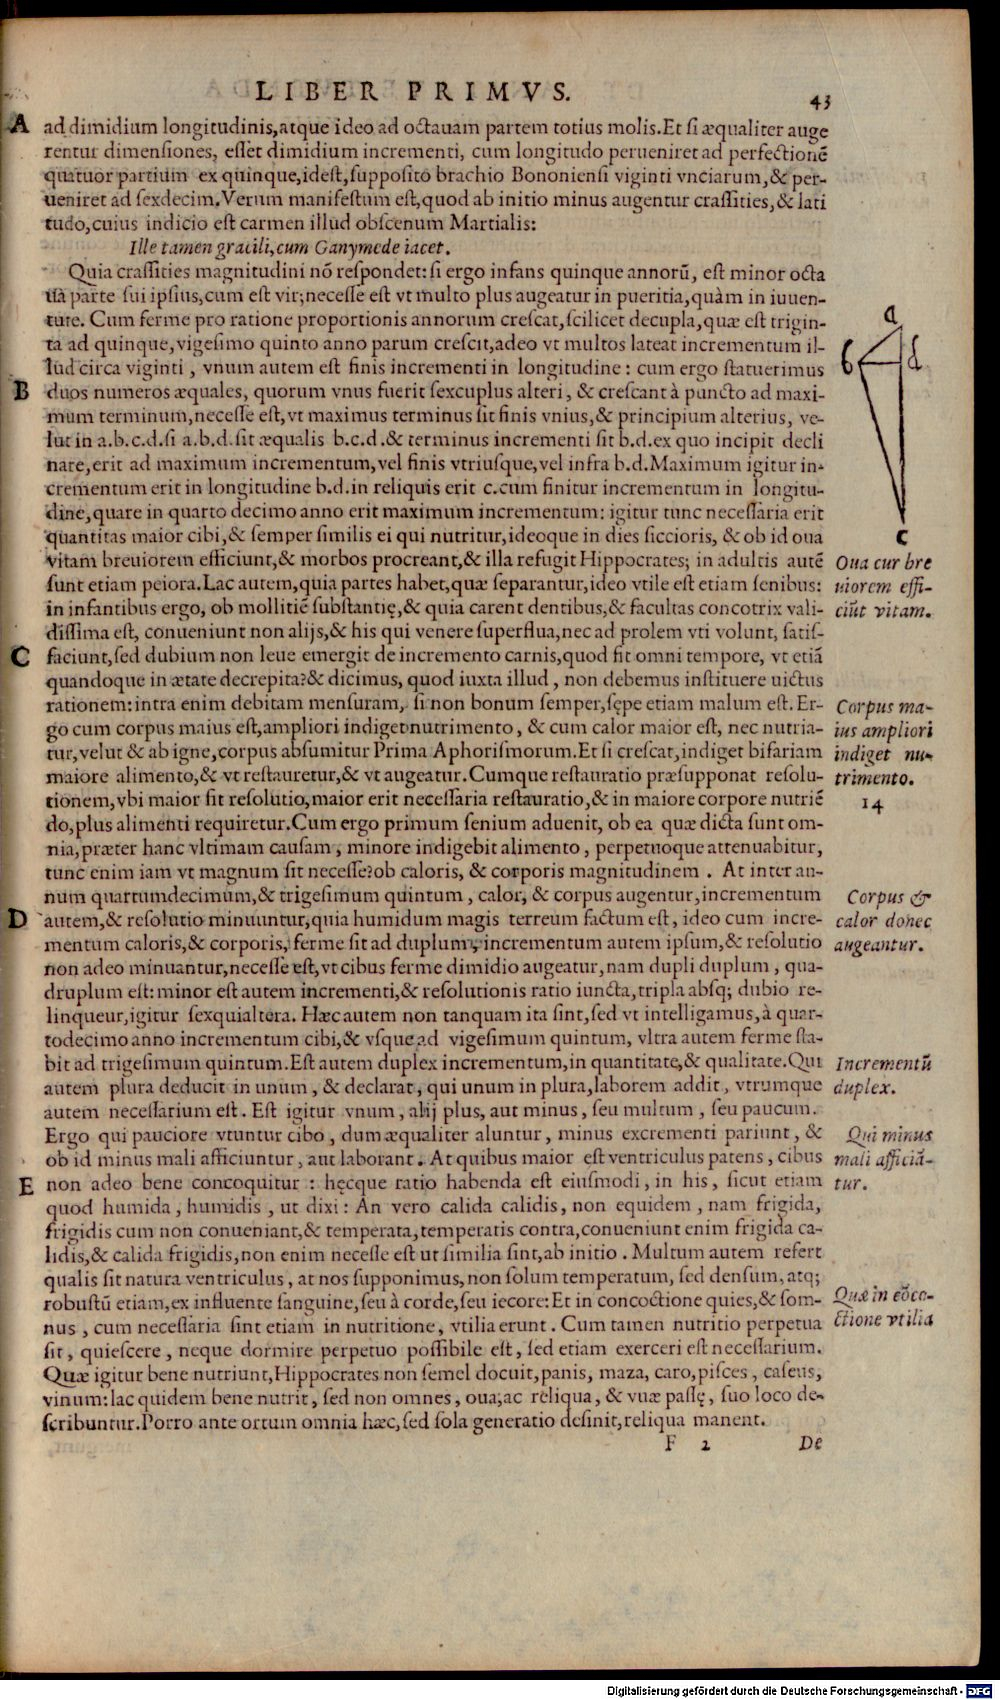 LIBER PRIMVS.
43
A ad dimidium longitudinis, atque ideo ad octauam partem totius molis. Et si æqualiter auge
rentur dimensiones, esset dimidium incrementi, cum longitudo perueniret ad perfectionē
quatuor partium ex quinque, idest, supposito brachio Bononiensi viginti vnciarum, & per-
ueniret ad sexdecim. Verum manifestum est, quod ab initio minus augentur crassities, & lati
tudo, cuius indicio est carmen illud obscenum Martialis:
Ille tamen gracili, cum Ganymede iacet.
Quia crassities magnitudini nō respondet: si ergo infans quinque annorū, est minor octa
ua parte sui ipsius, cum est vir; necesse est vt multo plus augeatur in pueritia, quàm in iuuen-
tute. Cum ferme pro ratione proportionis annorum crescat, scilicet decupla, quæ est trigin-
ta ad quinque, vigesimo quinto anno parum crescit, adeo vt multos lateat incrementum il-
lud circa viginti, vnum autem est finis incrementi in longitudine: cum ergo statuerimus
B duos numeros æquales, quorum vnus fuerit sexcuplus alteri, & crescant à puncto ad maxi-
mum terminum, necesse est, vt maximus terminus sit finis vnius, & principium alterius, ve-
lut in a.b.c.d. si a.b.d. sit æqualis b.c.d. & terminus incrementi sit b.d. ex quo incipit decli
nare, erit ad maximum incrementum, vel finis vtriusque, vel infra b.d. Maximum igitur in-
crementum erit in longitudine b.d. in reliquis erit c. cum finitur incrementum in longitu-
dine, quare in quarto decimo anno erit maximum incrementum: igitur tunc necessaria erit
quantitas maior cibi, & semper similis ei qui nutritur, ideoque in dies siccioris, & ob id oua
vitam breuiorem efficiunt, & morbos procreant, & illa refugit Hippocrates; in adultis autē
sunt etiam peiora. Lac autem, quia partes habet, quæ separantur, ideo vtile est etiam senibus:
in infantibus ergo, ob mollitiē substantię, & quia carent dentibus, & facultas concotrix vali-
dissima est, conueniunt non alijs, & his qui venere superflua, nec ad prolem vti volunt, satis-
C faciunt, sed dubium non leue emergit de incremento carnis, quod fit omni tempore, vt etiā
quandoque in ætate decrepita? & dicimus, quod iuxta illud, non debemus instituere uictus
rationem: intra enim debitam mensuram, si non bonum semper, sępe etiam malum est. Er-
go cum corpus maius est, ampliori indiget nutrimento, & cum calor maior est, nec nutria-
tur, velut & ab igne, corpus absumitur Prima Aphorismorum. Et si crescat, indiget bifariam
maiore alimento, & vt restauretur, & vt augeatur. Cumque restauratio præsupponat resolu-
tionem, vbi maior sit resolutio, maior erit necessaria restauratio, & in maiore corpore nutriē
do, plus alimenti requiretur. Cum ergo primum senium aduenit, ob ea quæ dicta sunt om-
nia, præter hanc vltimam causam, minore indigebit alimento, perpetuoque attenuabitur,
tunc enim iam vt magnum sit necesse? ob caloris, & corporis magnitudinem. At inter an-
num quartumdecimum, & trigesimum quintum, calor, & corpus augentur, incrementum
D autem, & resolutio minuuntur, quia humidum magis terreum factum est, ideo cum incre-
mentum caloris, & corporis, ferme sit ad duplum, incrementum autem ipsum, & resolutio
non adeo minuantur, necesse est, vt cibus ferme dimidio augeatur, nam dupli duplum, qua-
druplum est: minor est autem incrementi, & resolutionis ratio iuncta, tripla absq; dubio re-
linqueur, igitur sexquialtera. Hæc autem non tanquam ita sint, sed vt intelligamus, à quar-
todecimo anno incrementum cibi, & vsque ad vigesimum quintum, vltra autem ferme sta-
bit ad trigesimum quintum. Est autem duplex incrementum, in quantitate, & qualitate. Qui
autem plura deducit in unum, & declarat, qui unum in plura, laborem addit, vtrumque
autem necessarium est. Est igitur vnum, alij plus, aut minus, seu multum, seu paucum.
Ergo qui pauciore vtuntur cibo, dum æqualiter aluntur, minus excrementi pariunt, &
ob id minus mali afficiuntur, aut laborant. At quibus maior est ventriculus patens, cibus
E non adeo bene concoquitur: hęcque ratio habenda est eiusmodi, in his, sicut etiam
quod humida, humidis, ut dixi: An vero calida calidis, non equidem, nam frigida,
frigidis cum non conueniant, & temperata, temperatis contra, conueniunt enim frigida ca-
lidis, & calida frigidis, non enim necesse est ut similia sint, ab initio. Multum autem refert
qualis sit natura ventriculus, at nos supponimus, non solum temperatum, sed densum, atq;
robustū etiam, ex influente sanguine, seu à corde, seu iecore: Et in concoctione quies, & som-
nus, cum necessaria sint etiam in nutritione, vtilia erunt. Cum tamen nutritio perpetua
sit, quiescere, neque dormire perpetuo possibile est, sed etiam exerceri est necessarium.
Quæ igitur bene nutriunt, Hippocrates non semel docuit, panis, maza, caro, pisces, caseus,
vinum: lac quidem bene nutrit, sed non omnes, oua, ac reliqua, & vuæ passę, suo loco de-
scribuntur. Porro ante ortum omnia hæc, sed sola generatio desinit, reliqua manent.
F 2 De
a
b d
c
Oua cur bre
uiorem effi-
ciūt vitam.
Corpus ma-
ius ampliori
indiget nu-
trimento.
14
Corpus &
calor donec
augeantur.
Incrementū
duplex.
Qui minus
mali afficiā-
tur.
Quæ in cōco-
ctione vtilia
Digitalisierung gefördert durch die Deutsche Forschungsgemeinschaft - DFG